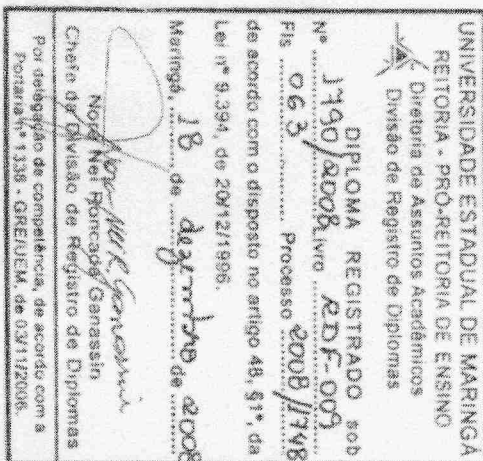 UNIVERSIDADE ESTADUAL DE MARINGÁ
REITORIA - PRÓ-REITORIA DE ENSINO
Diretoria de Assuntos Acadêmicos
Divisão de Registro de Diplomas
DIPLOMA REGISTRADO sob
Nº 1790/2008 Livro RDF-009
Fls 063 Processo 2008/1748
de acordo com o disposto no artigo 48, §1º, da
Lei nº 9.394, de 20/12/1996.
Maringá, 18 de dezembro de 2008
Nova Nei Roncada Gavassin
Chefe da Divisão de Registro de Diplomas
Por delegação de competência, de acordo com a
Portaria nº 1338 - GRE/UEM, de 03/11/2006.